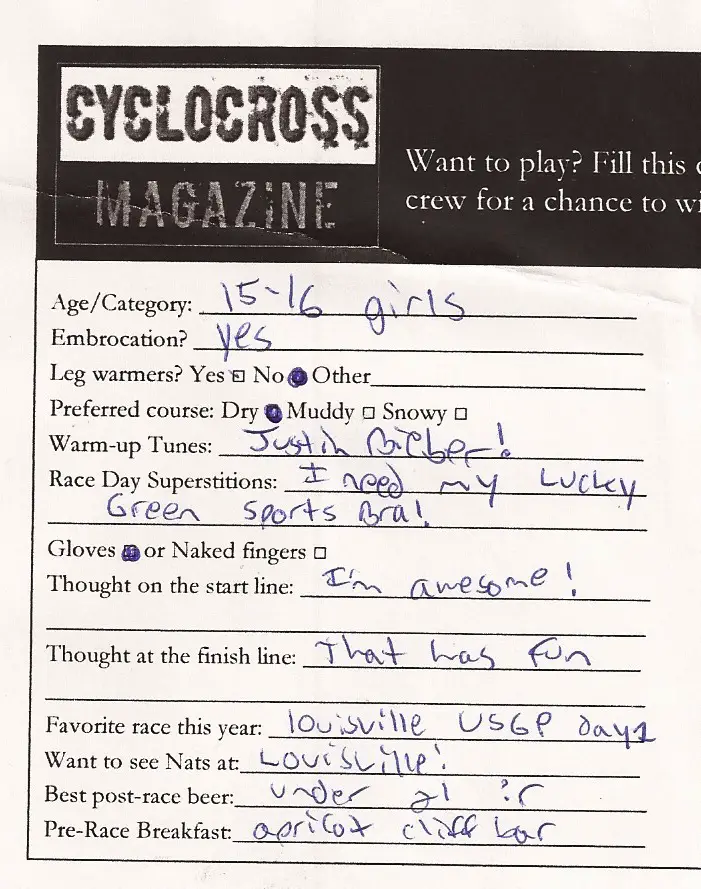 CYCLOCROSS
MAGAZINE
Want to play? Fill this
crew for a chance to wi
Age/Category: 15-16 girls
Embrocation? yes
Leg warmers? Yes No Other
Preferred course: Dry Muddy Snowy
Warm-up Tunes: Justin Bieber!
Race Day Superstitions: I need my Lucky
Green sports Bra!
Gloves or Naked fingers
Thought on the start line: I'm awesome!
Thought at the finish line: That was fun
Favorite race this year: louisville USGP Day1
Want to see Nats at: Louisville!
Best post-race beer: under 21
Pre-Race Breakfast: apricot cliff bar